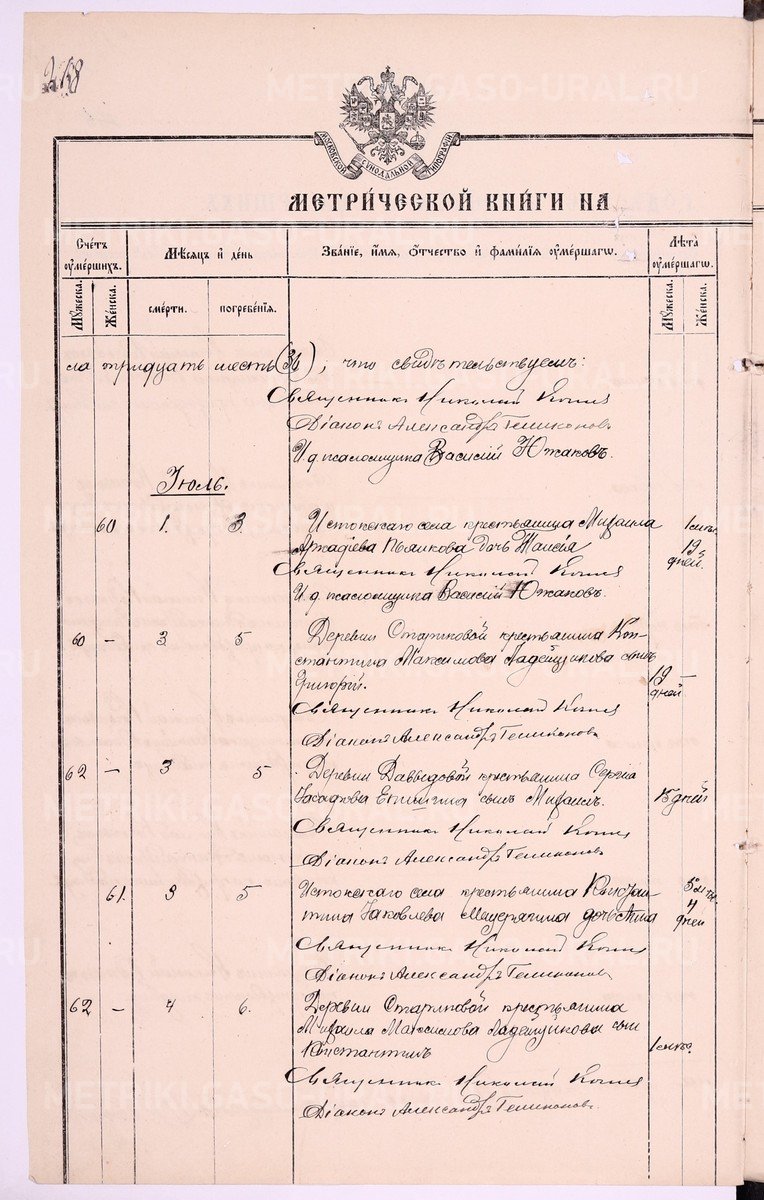 258
МОСКОВСКОЙ СѴНОДАЛЬНОЙ ТИПОГРАФІИ
МЕТРИЧЕСКОЙ КНИГИ НА
Счетъ умершихъ.
Мѣсяцъ и день
Званіе, имя, отчество и фамилія умершаго.
Лѣта умершаго.
Мужеска.
Женска.
смерти.
погребенія.
Мужеска.
Женска.
ла тридцать шесть (36), что свидѣтельствуемъ:
Священникъ Николай
Діаконъ Александръ
И. д. псаломщика Василій Южаковъ.
Іюль.
60 1. 3. Истокскаго села крестьянина Михаила 1 мѣс.
Аркадіева дочь Таисія 19 дней.
Священникъ Николай
И. д. псаломщика Василій Южаковъ.
60 – 3 5 Деревни Стариковой крестьянина Кон-
стантина Максимова Ладейщикова сынъ
Григорій. 19 дней –
Священникъ Николай
Діаконъ Александръ
62 – 3 5 Деревни Давыдовой крестьянина Сергія
сынъ Михаилъ. 15 дней
Священникъ Николай
Діаконъ Александръ
61. 3 5 Истокскаго села крестьянина 5 м-цы
Яковлева дочь Анна 4 дней
Священникъ Николай
Діаконъ Александръ
62 – 4 6. Деревни Стариковой крестьянина
Михаила Максимова Ладейщикова сынъ
Константинъ 1 мѣс.
Священникъ Николай
Діаконъ Александръ
METRIKI.GASO-URAL.RU